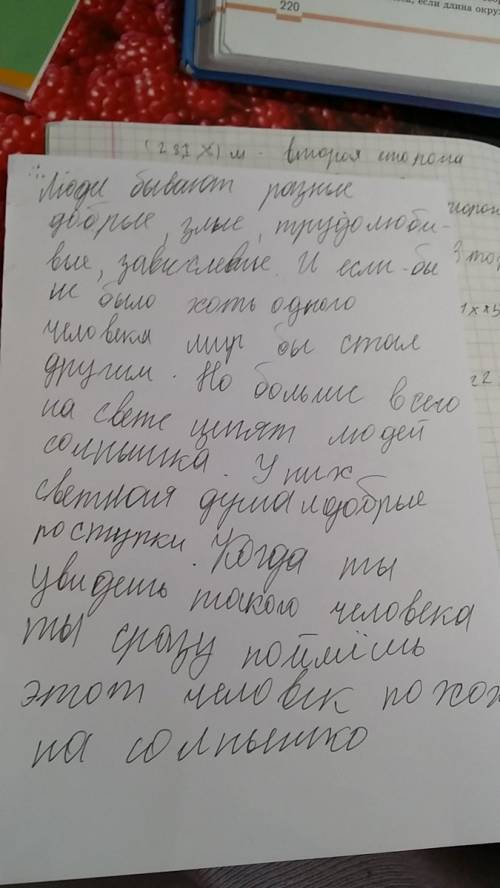 220
, если длина окру
(2 8 1 X) м - вторая сторона
Люди бывают разные
добрые, злые, трудолюби-
вые, завислевые. И если-бы
не было хоть одного
человека мир бы стал
другим. Но больше всего
на свете ценят людей
солнышка. У них
светлая душа и добрые
поступки. Когда ты
увидешь такого человека
ты сразу поймёшь
этот человек похож
на солнышко